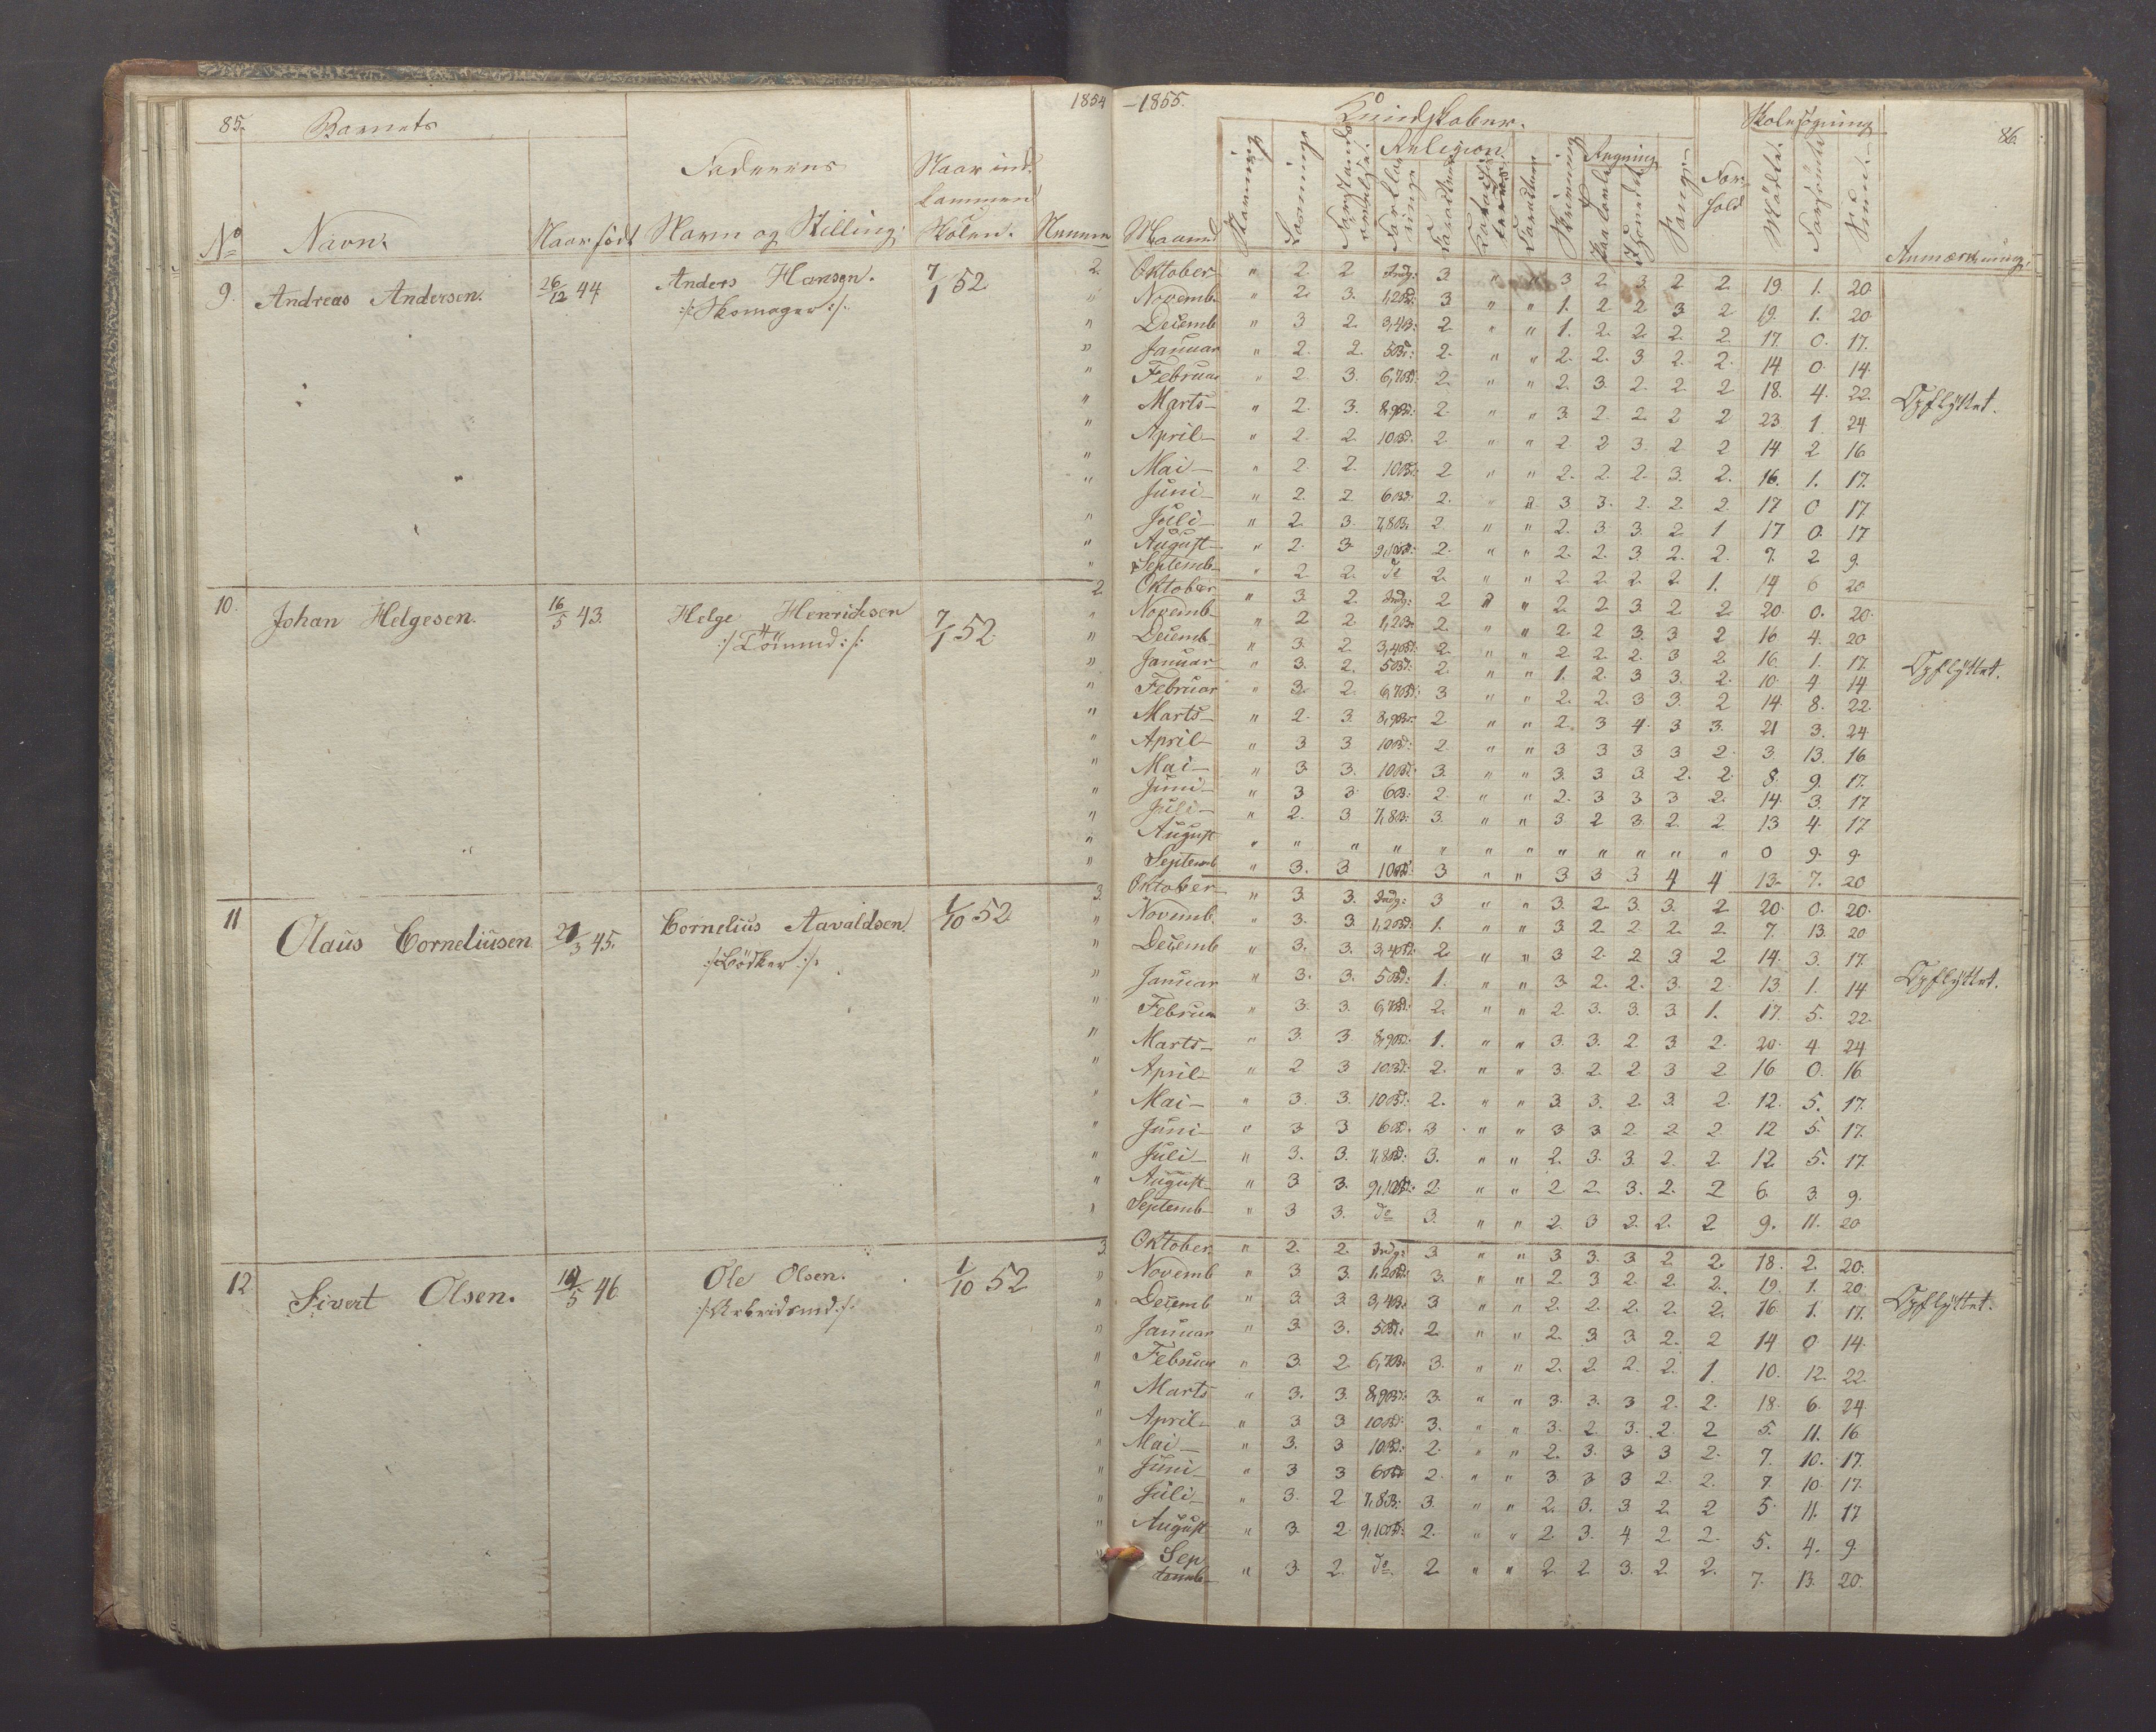 85. Barnets 1854
Faderens Naar ind-
kommen i
No Navn. Naar født Navn og Stilling. Skolen. Numer
9. Andreas Andersen. 26/12 44 Anders Hansen. 7/1 52 2.
:/: Skomager :/:
10. Johan Helgesen. 16/5 43. Helge Henrichsen 7/1 52. 2
11 Olaus Corneliusen 21/3 45. Cornelius Aavaldsen. 1/10 52 3.
:/: Bødker :/:
12 Sivert Olsen. 19/5 46 Ole Olsen. 1/10 52 3.
:/: Arbeidsmd :/:
-1855. Kundskaber. Skolesøgning 86.
Religion Regning
Maaned Skrivning Sang For-
hold Mødt. Forsømt Sum. Anmærkning.
Oktober " 2 2 Indg: 3 " 3 2 3. 2 2 19. 1. 20.
Novemb. " 2. 3. 1,2Bd: 3 " " 1. 2 2 3 2 19. 1. 20
Decemb " 3 2. 3,4B: 2 " " 1. 2. 2. 2. 2. 17. 0. 17.
Januar " 2. 2. 5Bd: 2. " " 2. 2. 3. 2. 2. 14 0. 14.
Februar " 2 3. 6,7Bd: 2. " " 2. 3. 2. 2 2. 18. 4. 22.
Opflyttet.
Marts- " 2. 3. 8,9Bd: 2. " " 3. 2. 2. 2 2 23 1. 24
April- " 2. 2. 10Bd: 2 " " 2 2 3. 2 2 14. 2 16
Mai- " 2. 2. 10Bd: 2 " " 2. 2. 2. 3. 2. 16. 1. 17.
Juni- " 2. 2 6Bd: 2. " " 3 3. 2. 2. 2. 17 0 17.
Juli- " 2 3. 7,8B. 2 " " 2. 3. 3. 2 1 17 0. 17
August- " 2. 3. 9,10Bd: 2. " " 2. 2. 3 2. 2. 7. 2 9.
Septemb- " 2 2. do 2. " " 2. 2. 2. 2. 1. 14 6 20
Oktober " 3 2. Indg: 2 " " 2. 2. 3. 2 2 20. 0. 20.
Novemb- " 2 2 1,2B: 2. " " 2. 2 3. 3 2 16 4. 20
Decemb " 3. 2. 3,4Bd: 2. " " 2. 2. 2. 3 2. 16. 1. 17.
Opflyttet.
Januar- " 3. 2. 5Bd: 2. " " 1. 2. 3 3. 2. 10. 4 14
Februar " 3. 2. 6,7Bd: 3 " " 2. 2. 3 3. 2 14. 8. 22.
Marts- " 2. 3. 8,9B: 2 " " 2. 3 4. 3 3. 21 3. 24
April- " 3 3 10Bd: 2. " " 3 3 3 3 2. 3. 13. 16
Mai- " 3. 3. 10Bd: 3. " " 3. 3 3. 2. 2. 8. 9. 17.
Juni- " 3 3 6B: 2. " " 2. 3 3 3 2. 14. 3. 17
Juli- " 2. 3 7,8B: 3. " " 3 2 3. 2. 2 13 4. 17
August " " " " " " " " " " " " 0 9. 9.
Septemb " 3. 3 10Bd 3 " " 3 3 3 4 4 13. 7. 20
Oktober- " 3 3. Indg: 3 " " 3. 2. 3. 3. 2 20. 0. 20.
Novemb. " 3. 3 1,2Bd: 1. " " 3 2 2 2. 2. 7. 13. 20
Decemb " 3. 3. 3,4Bd: 2 " " 3 2. 2 3. 2. 14. 3. 17.
Januar " 3. 3. 5Bd: 1. " " 3. 2. 2. 3. 2 13. 1. 14
Opflyttet.
Februar " 3. 3. 6,7Bd: 2. " " 2. 3. 3. 3. 1. 17. 5. 22.
Marts- " 3. 3. 8,9Bd: 1. " " 3. 3. 2 3. 2. 20. 4 24
April- " 2 3 10Bd: 2. " " 3. 2. 2 3 2 16 0. 16.
Mai- " 3. 3. 10Bd: 2. " " 3. 3. 2. 3. 2. 12. 5. 17.
Juni- " 3 3 6Bd. 3 " " 3 3 2. 2. 2 12 5. 17.
Juli- " 3. 3. 7,8Bd: 3. " " 2. 3. 3. 2. 2. 12 5. 17.
August- " 3 3. 9,10Bd: 2. " " 2 2. 3. 2. 2 6. 3. 9.
Septemb- " 3 3. do 3. " " 2. 3 2. 2. 2 9. 11. 20
Oktober. " 2. 2. Indg: 3 " " 3. 3. 3 2 2. 18. 2. 20.
Novemb " 3. 3. 1,2Bd: 3. " " 2. 3 2. 2. 2. 19. 1. 20.
Decemb " 3. 3. 3,4B: 3 " " 2. 2. 2. 2. 2. 16. 1. 17.
Opflyttet.
Januar " 3. 3. 5Bd: 2. " " 2. 3. 3. 2. 2 14 0 14.
Februar " 3. 2. 6,7B: 3. " " 2. 2. 2. 2. 1. 10. 12. 22.
Marts " 3. 3. 8,9Bd: 3. " " 3. 3. 3 2. 2. 18. 6. 24
April- " 3 3 10Bd: 3. " " 3. 2. 3. 2. 2 5. 11. 16
Mai- " 3. 3 10Bd: 2. " " 2. 3. 3 3 2. 7. 10. 17.
Juni- " 3 3 6Bd 2. " " 3 3 3 2. 2. 7. 10. 17.
Juli- " 3. 2 7,8B: 3. " " 2. 3. 3. 2 2 5. 11. 17
August " 3. 2 9,10Bd: 2. " " 2. 3. 4 2 2. 5. 4. 9.
Sep
temb- " 3. 2. do. 2 " " 2. 2 3. 2. 2. 7. 13. 20.